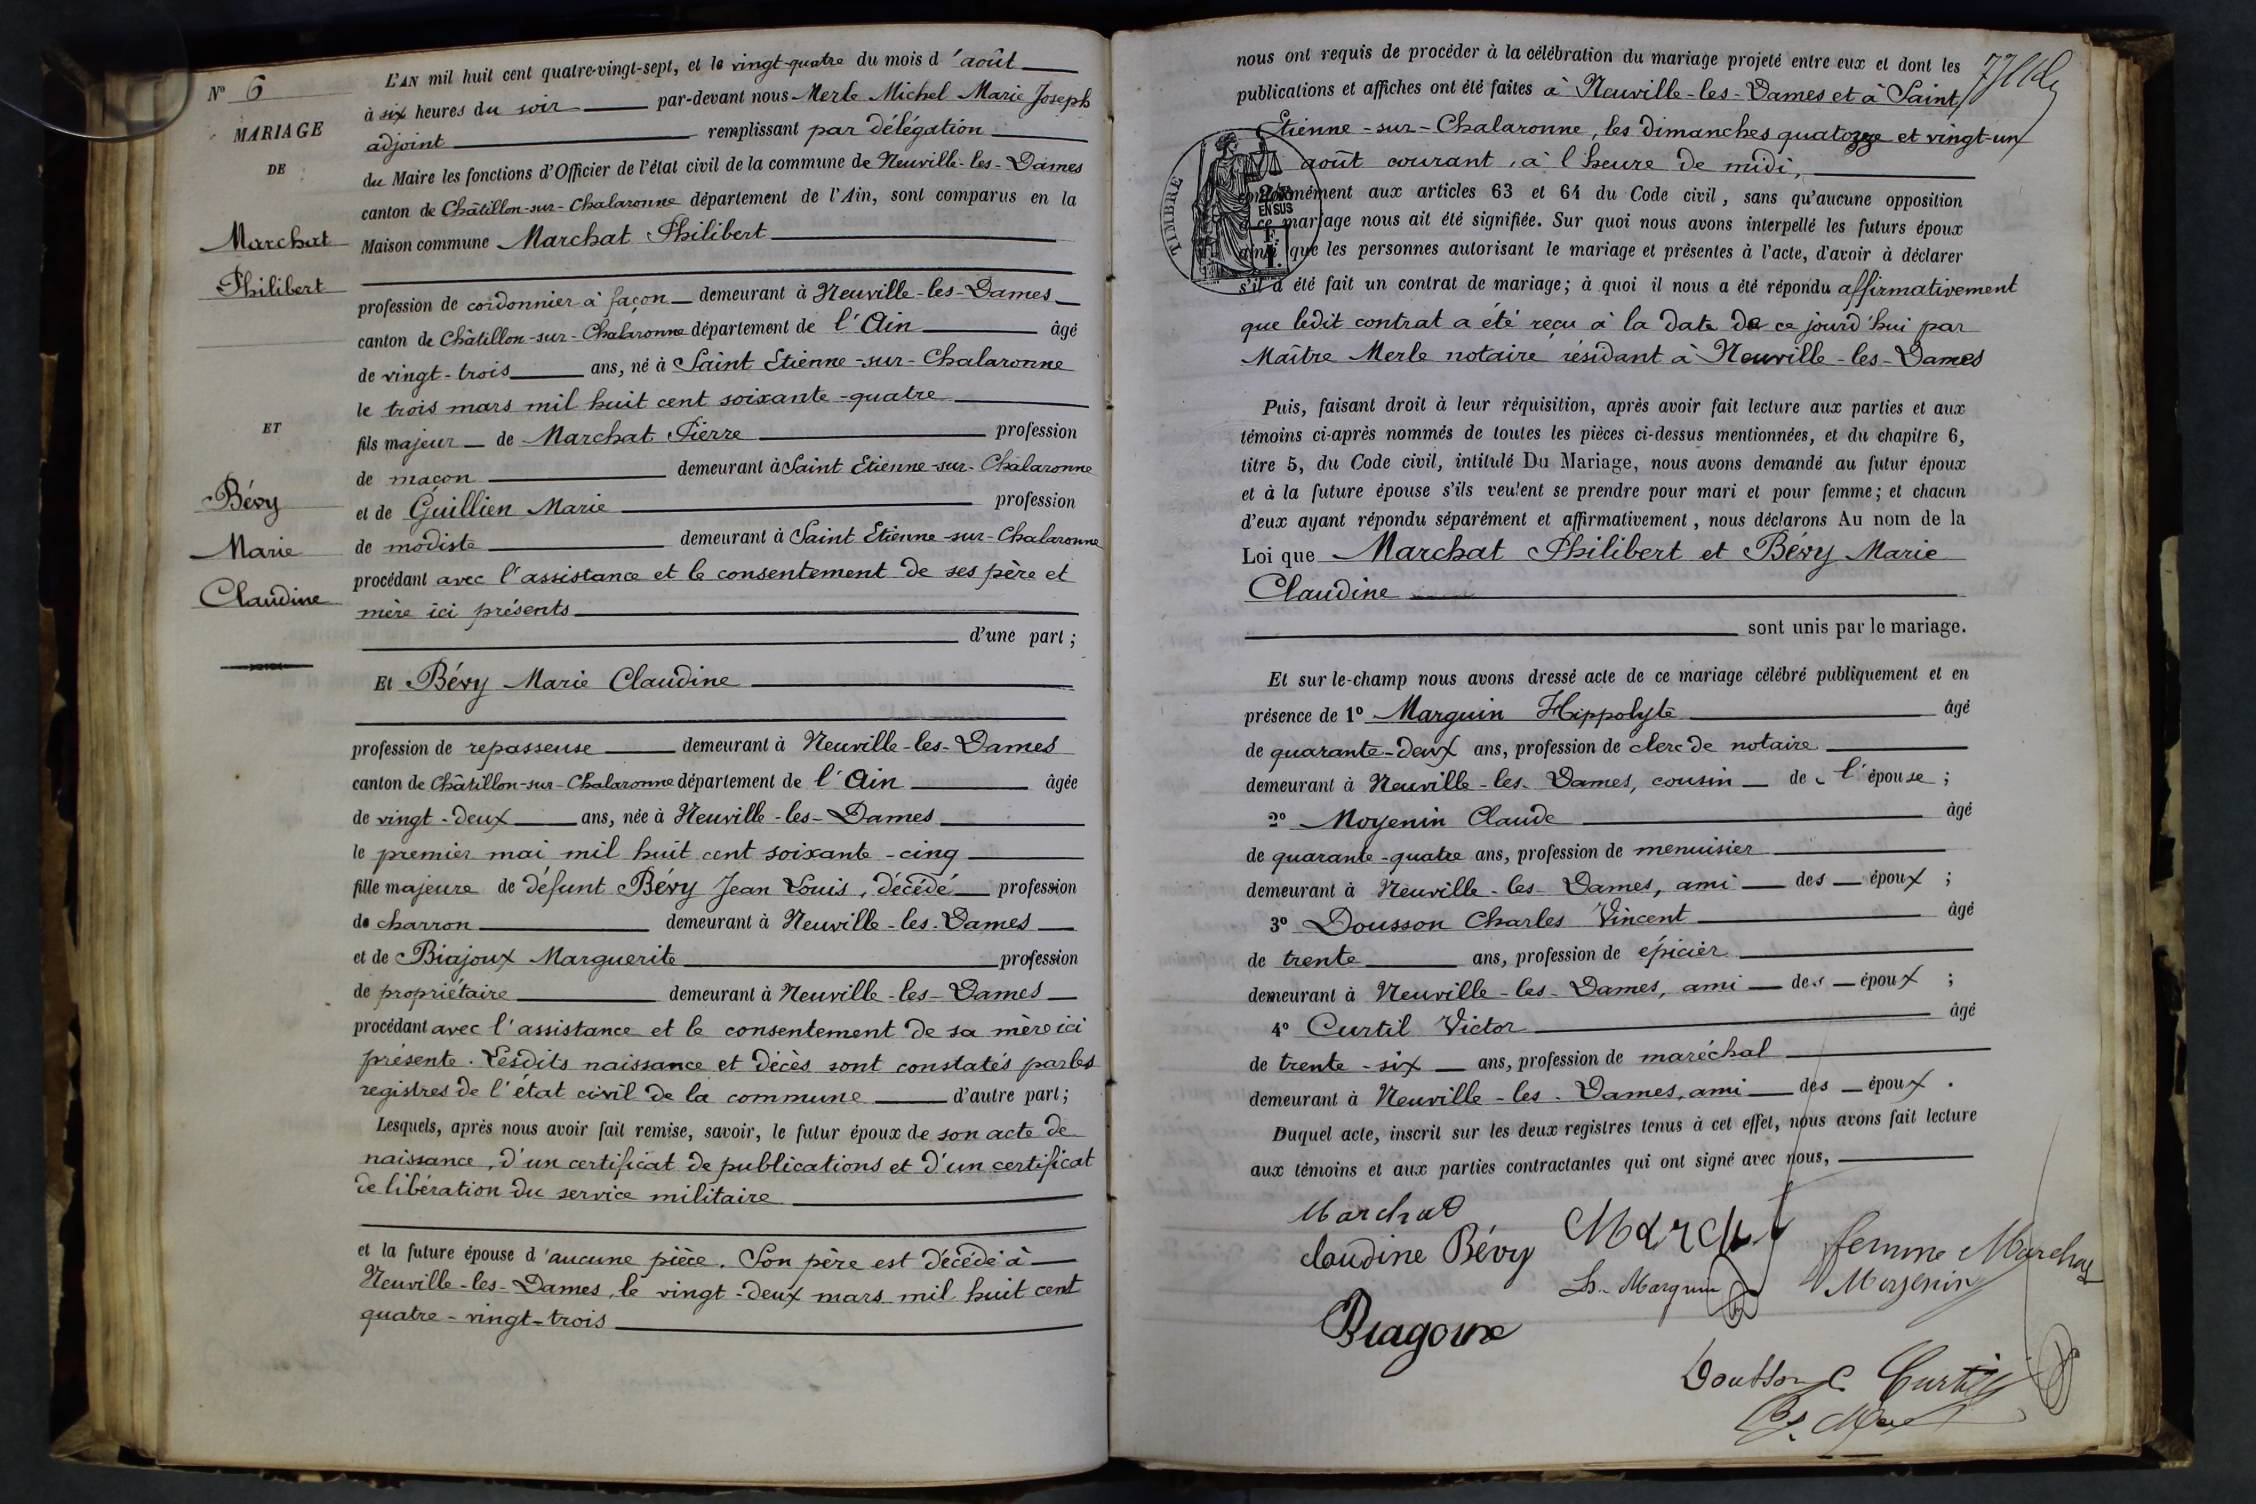 N° 6
MARIAGE
DE
Marchat
Philibert
ET
Bévy
Marie
Claudine
L'AN mil huit cent quatre-vingt-sept, et le vingt-quatre du mois d'août
à six heures du soir par-devant nous Merle Michel Marie Joseph
adjoint remplissant par délégation
du Maire les fonctions d'Officier de l'état civil de la commune de Neuville-les-Dames
canton de Châtillon-sur-Chalaronne département de l'Ain, sont comparus en la
Maison commune Marchat Philibert
profession de cordonnier à façon demeurant à Neuville-les-Dames
canton de Châtillon-sur-Chalaronne département de l'Ain âgé
de vingt-trois ans, né à Saint Etienne-sur-Chalaronne
le trois mars mil huit cent soixante-quatre
fils majeur de Marchat Pierre profession
de maçon demeurant à Saint Etienne-sur-Chalaronne
et de Guillien Marie profession
de modiste demeurant à Saint Etienne-sur-Chalaronne
procédant avec l'assistance et le consentement de ses père et
mère ici présents
d'une part ;
Et Bévy Marie Claudine
profession de repasseuse demeurant à Neuville-les-Dames
canton de Châtillon-sur-Chalaronne département de l'Ain âgée
de vingt-deux ans, née à Neuville-les-Dames
le premier mai mil huit cent soixante-cinq
fille majeure de défunt Bévy Jean Louis, décédé profession
de charron demeurant à Neuville-les-Dames
et de Biajoux Marguerite profession
de propriétaire demeurant à Neuville-les-Dames
procédant avec l'assistance et le consentement de sa mère ici
présente. Lesdits naissance et décès sont constatés par les
registres de l'état civil de la commune d'autre part ;
Lesquels, après nous avoir fait remise, savoir, le futur époux de son acte de
naissance, d'un certificat de publications et d'un certificat
de libération du service militaire
et la future épouse d'aucune pièce. Son père est décédé à
Neuville-les-Dames, le vingt-deux mars mil huit cent
quatre-vingt-trois
nous ont requis de procéder à la célébration du mariage projeté entre eux et dont les
publications et affiches ont été faites à Neuville-les-Dames et à Saint
Etienne-sur-Chalaronne, les dimanches quatorze et vingt-un
août courant, à l'heure de midi,
TIMBRE
EN SUS
conformément aux articles 63 et 64 du Code civil, sans qu'aucune opposition
à ce mariage nous ait été signifiée. Sur quoi nous avons interpellé les futurs époux
ainsi que les personnes autorisant le mariage et présentes à l'acte, d'avoir à déclarer
s'il a été fait un contrat de mariage ; à quoi il nous a été répondu affirmativement
que ledit contrat a été reçu à la date de ce jourd'hui par
Maître Merle notaire résidant à Neuville-les-Dames
Puis, faisant droit à leur réquisition, après avoir fait lecture aux parties et aux
témoins ci-après nommés de toutes les pièces ci-dessus mentionnées, et du chapitre 6,
titre 5, du Code civil, intitulé Du Mariage, nous avons demandé au futur époux
et à la future épouse s'ils veulent se prendre pour mari et pour femme ; et chacun
d'eux ayant répondu séparément et affirmativement, nous déclarons Au nom de la
Loi que Marchat Philibert et Bévy Marie
Claudine
sont unis par le mariage.
Et sur le-champ nous avons dressé acte de ce mariage célébré publiquement et en
présence de 1° Marguin Hippolyte âgé
de quarante-deux ans, profession de clerc de notaire
demeurant à Neuville-les-Dames, cousin de l'épouse ;
2° Moyenin Claude âgé
de quarante-quatre ans, profession de menuisier
demeurant à Neuville-les-Dames, ami des époux ;
3° Dousson Charles Vincent âgé
de trente ans, profession de épicier
demeurant à Neuville-les-Dames, ami des époux ;
4° Curtil Victor âgé
de trente-six ans, profession de maréchal
demeurant à Neuville-les-Dames, ami des époux.
Duquel acte, inscrit sur les deux registres tenus à cet effet, nous avons fait lecture
aux témoins et aux parties contractantes qui ont signé avec nous,
Marchat
claudine Bévy
femme Marchat
h. Marguin
Moyenin
Biagoux
Dousson C.
Curtil